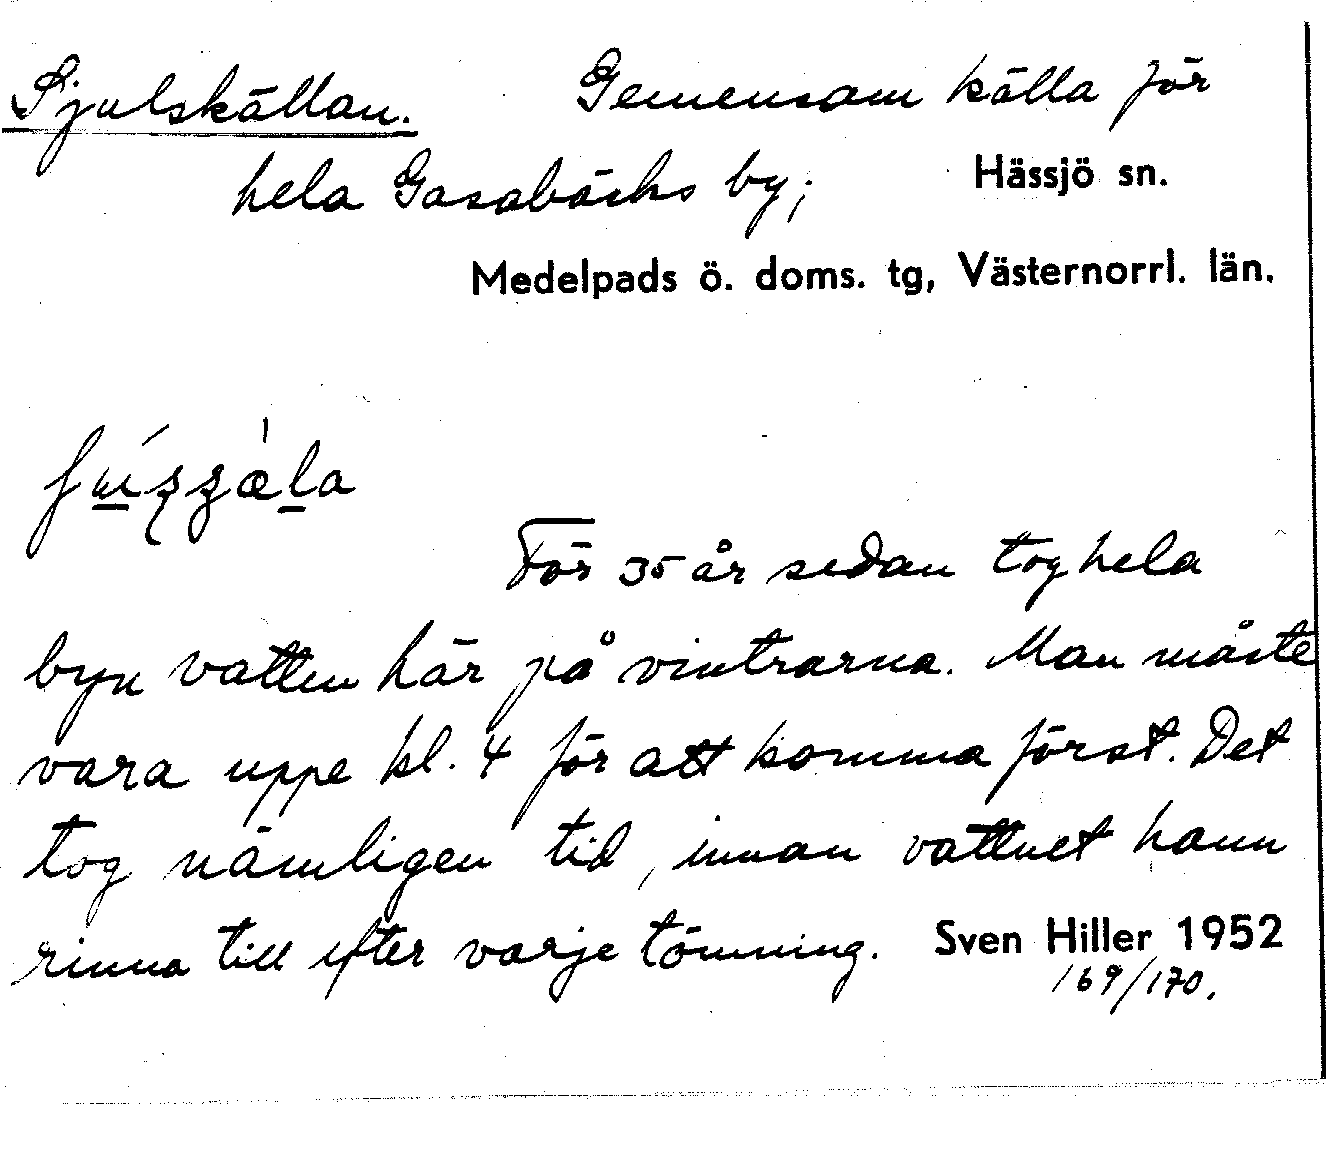 Sjulskällan. Gemensam källa för
hela Gasabäcks by; Hässjö sn.
Medelpads ö. doms. tg, Västernorrl. län.
För 35 år sedan tog hela
byn vatten här på vintrarna. Man måste
vara uppe kl. 4 för att komma först. Det
tog nämligen tid, innan vattnet hann
rinna till efter varje tömning. Sven Hiller 1952
169/170.